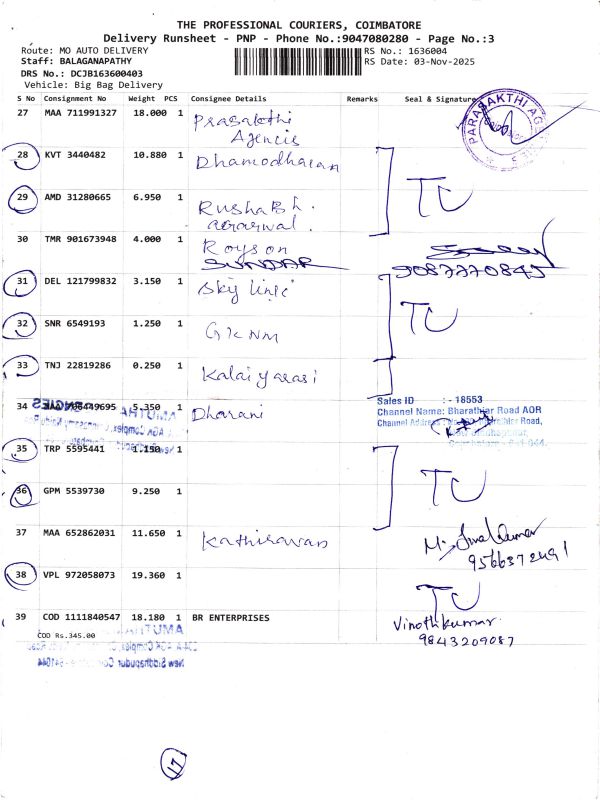 THE PROFESSIONAL COURIERS, COIMBATORE
Delivery Runsheet - PNP - Phone No.:9047080280 - Page No.:3
Route: MO AUTO DELIVERY
RS No.: 1636004
Staff: BALAGANAPATHY
RS Date: 03-Nov-2025
DRS No.: DCJB163600403
Vehicle: Big Bag Delivery
S No Consignment No Weight PCS Consignee Details Remarks Seal & Signature
27 MAA 711991327 18.000 1 Prasakthi Agencis
PARASAKTHI
28 KVT 3440482 10.880 1 Dhamodharan
TU
29 AMD 31280665 6.950 1 Rushabh. agrarwal.
30 TMR 901673948 4.000 1 Royson
SUNDAR
9087770845
31 DEL 121799832 3.150 1 Sky line
TU
32 SNR 6549193 1.250 1
33 TNJ 22819286 0.250 1 Kalaiyarasi
34 5.350 1 Dharani
Sales ID : - 18553
Channel Name: Bharathiar Road AOR
Channel Address
35 TRP 5595441 1.150 1
TU
36 GPM 5539730 9.250 1
37 MAA 652862031 11.650 1 Kathiravan
9566372491
38 VPL 972058073 19.360 1
TU
39 COD 1111840547 18.180 1 BR ENTERPRISES
COD Rs.345.00
Vinothkumar
9843209087
AMUTHA
AGK Complex,
New Siddhapudur
17